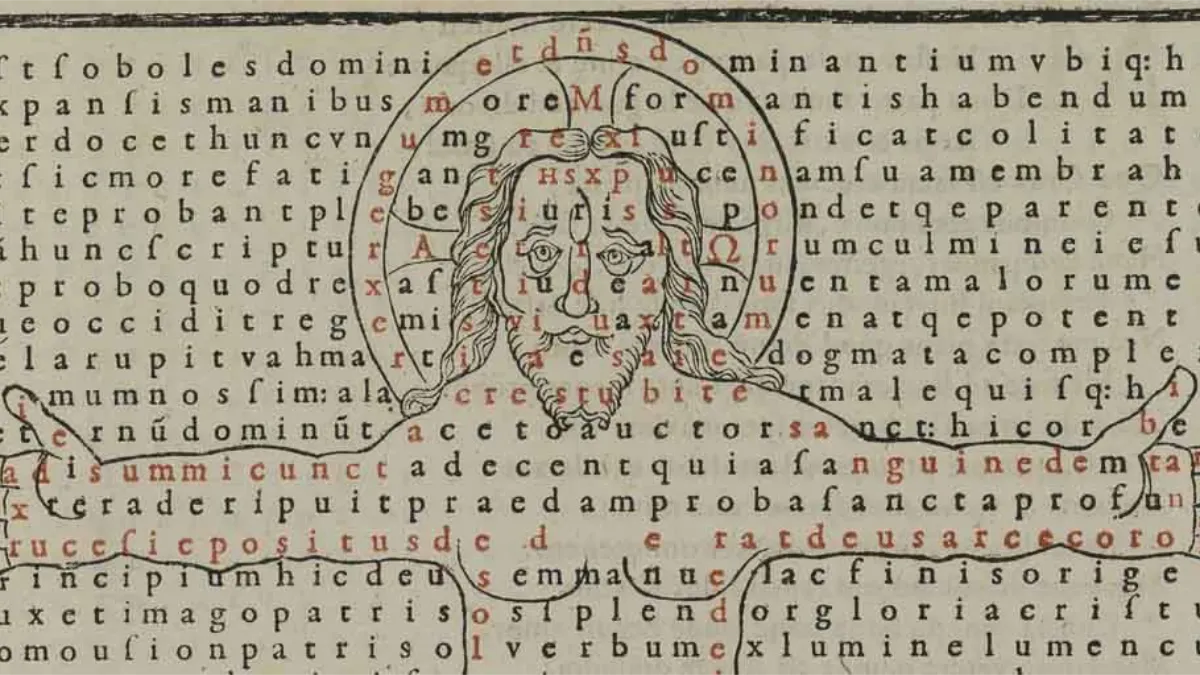 ſtſobolesdominietdn̄sdominantiumvbiq:h
xpanſismanibusmoreMformantishabendum
erdocethuncvnumgrexiuſtificatcolitat
ſicmorefatigantHsxpucenamſuamembrah
iteprobantplebesiurisspondetqeparent
āhuncſcripturAetraltΩrumculmineieſu
tproboquodrexaſtiudeàrnuentamalorume
eocciditregemisviuaxtamenatqepotent
elarupitvahmartiaesaiedogmatacomple
imumnosſim:alacrestubitetmalequiſq:hi
eternūdominūtacetoàuctorsanct:hicorbe
adisummicunctadecentquiaſanguinedemta
xteraderipuitpraedamprobaſanctaprofun
ruceſicpositusdederatdeusarcecoro
rincipiumhicdeusemmanuelacfinisorige
uxetimagopatrisosſplendorgloriacriſt
omouſionpatrisolverbumexluminelumencu